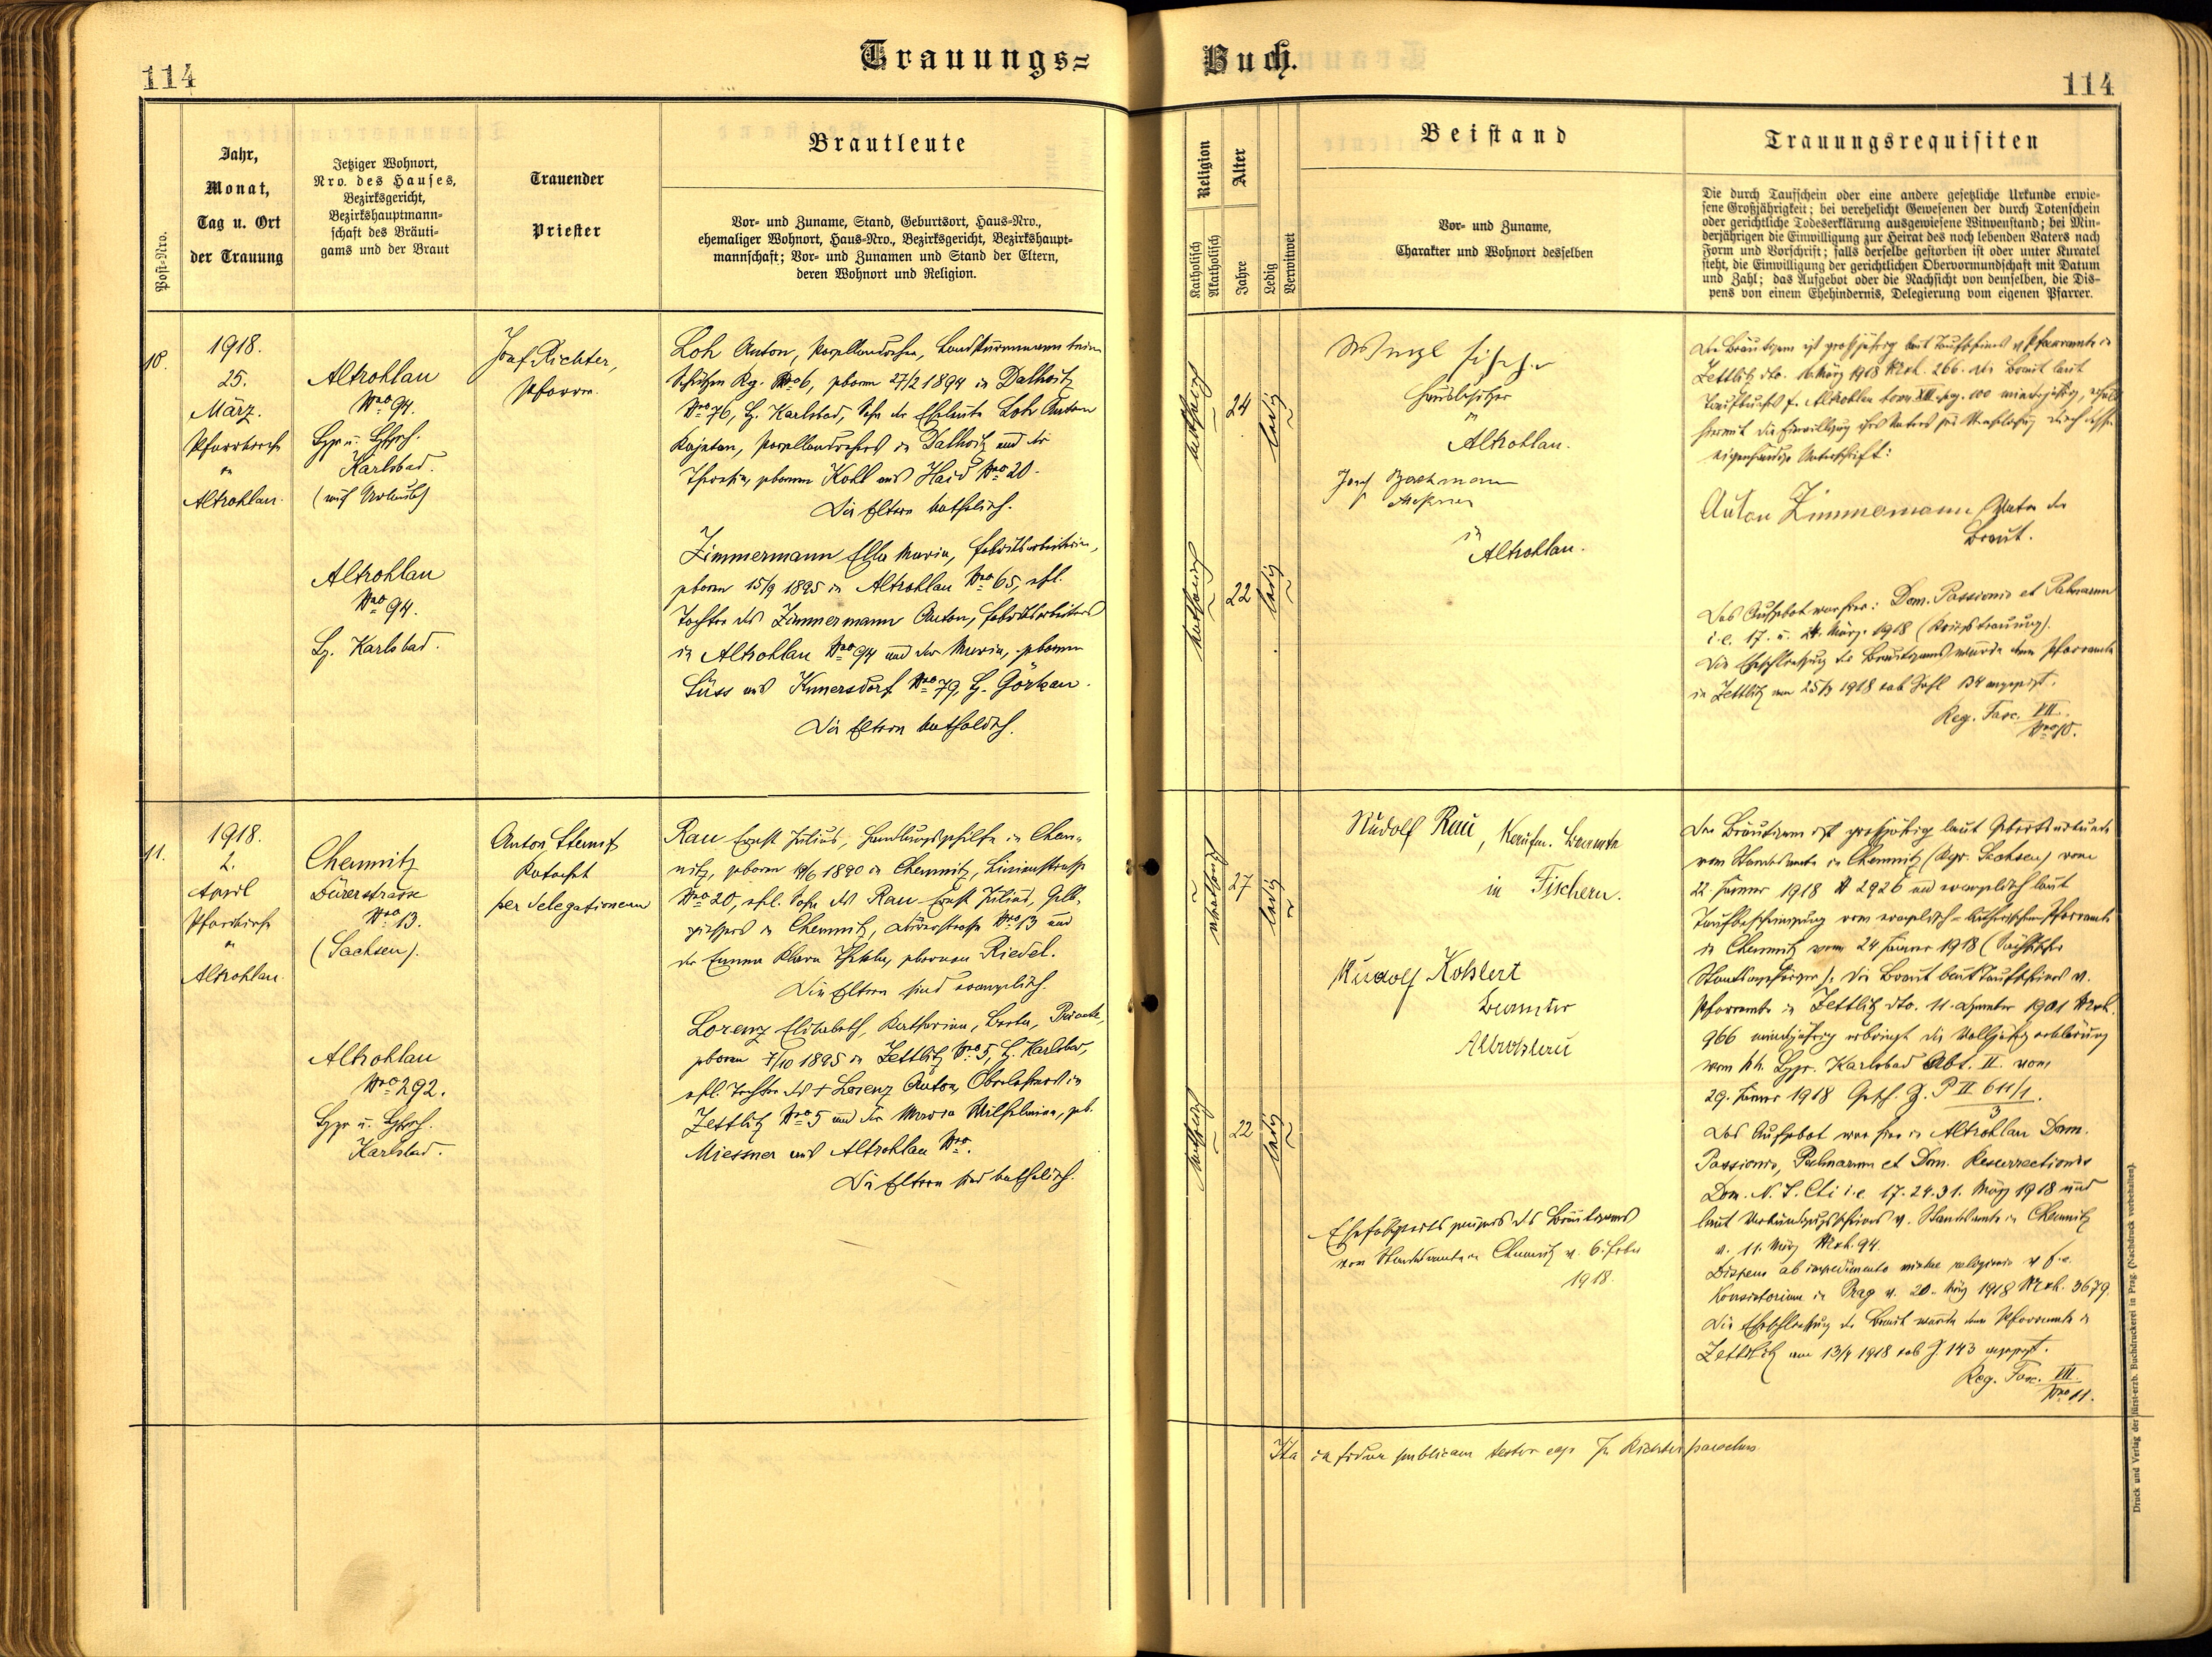 Trauungs=
Buch.
114
114
Post-Nro.
Jahr,
Monat,
Tag u. Ort
der Trauung
Jetziger Wohnort,
Nro. des Hauses,
Bezirksgericht,
Bezirkshauptmann-
schaft des Bräuti-
gams und der Braut
Trauender
Priester
Brautleute
Vor- und Zuname, Stand, Geburtsort, Haus-Nro.,
ehemaliger Wohnort, Haus-Nro., Bezirksgericht, Bezirkshaupt-
mannschaft; Vor- und Zunamen und Stand der Eltern,
deren Wohnort und Religion.
Religion
Katholisch
Akatholisch
Alter
Jahre
Ledig
Verwitwet
Beistand
Vor- und Zuname,
Charakter und Wohnort desselben
Trauungsrequisiten
Die durch Taufschein oder eine andere gesetzliche Urkunde erwie-
sene Großjährigkeit; bei verehelicht Gewesenen der durch Totenschein
oder gerichtliche Todeserklärung ausgewiesene Witwenstand; bei Min-
derjährigen die Einwilligung zur Heirat des noch lebenden Vaters nach
Form und Vorschrift; falls derselbe gestorben ist oder unter Kuratel
steht, die Einwilligung der gerichtlichen Obervormundschaft mit Datum
und Zahl; das Aufgebot oder die Nachsicht von demselben, die Dis-
pens von einem Ehehindernis, Delegierung vom eigenen Pfarrer.
10.
1918.
25.
März.
Pfarrkirche
in
Altrohlau.
Altrohlau
Nro 94.
Bzg. u. Bhsch.
Karlsbad.
(auf Urlaub)
Josef Richter,
Pfarrer.
Loh Anton, Porzellandreher, Landsturmmann beim
Schützen Reg. Nro 6, geboren 27/2 1894 in Dallwitz
Nro 76, B. Karlsbad, Sohn der Eheleute Loh Anton
Kajetan, Porzellandrehers in Dallwitz und der
Theresia, geborenen Kohl aus Haid Nro 20.
Die Eltern katholisch.
Altrohlau
Nro 94.
B. Karlsbad.
Zimmermann Ella Maria, Fabriksarbeiterin,
geboren 15/9 1895 in Altrohlau Nro 65, ehel.
Tochter des Zimmermann Anton, Fabriksarbeiters
in Altrohlau Nro 94 und der Maria, geborenen
Süss aus Kunersdorf Nro 79, B. Görkau.
Die Eltern katholisch.
katholisch
24
ledig
katholisch
22
ledig
Wenzl Fischer
Hausbesitzer
in
Altrohlau.
Josef Bachmann
in
Altrohlau.
Der Bräutigam ist großjährig laut Taufscheines v. Pfarramte in
Zettlitz dto. 16. März 1918 Nroh. 266. Die Braut laut
Taufbuches f. Altrohlau tom XII. pag. 100 minderjährig, erhält
hiermit die Einwilligung ihres Vaters zur Verehelichung durch dessen
eigenhändige Unterschrift:
Anton Zimmermann Vater der
Braut.
Das Aufgebot war hier: Dom. Passionis et Palmarum
i. e. 17. u. 24. März 1918 (Kriegstrauung).
Die Eheschließung des Bräutigams wurde dem Pfarramte
in Zettlitz am 25/3 1918 sub Zahl 134 angezeigt.
Reg. Fasc. VII.
Nro 10.
11.
1918.
2.
April
Pfarrkirche
in
Altrohlau.
Chemnitz
Dürerstrasse
Nro 13.
(Sachsen).
Anton Sternif
Katechet
per delegationem
Rau Ernst Julius, Handlungsgehilfe in Chem-
nitz, geboren 19/6 1890 in Chemnitz, Linienstraße
Nro 20, ehel. Sohn des Rau Ernst Julius, Gelb-
gießers in Chemnitz, Dürerstraße Nro 13 und
der Emma Klara Thekla, geborenen Riedel.
Die Eltern sind evangelisch.
Altrohlau
Nro 292.
Bzg. u. Bhsch.
Karlsbad.
Lorenz Elisabeth, Katharina, Berta, Private,
geboren 7/10 1895 in Zettlitz Nro 5, B. Karlsbad,
ehel. Tochter des + Lorenz Anton, Oberlehrers in
Zettlitz Nro 5 und der Maria Wilhelmina, geb.
Miessner aus Altrohlau Nro.
Die Eltern sind katholisch.
akatholisch
27
ledig
katholisch
22
ledig
Rudolf Rau, Kaufm. Beamte
in Fischern.
Rudolf Kohlert
Beamter
Altrohlau
Ehefähigkeitszeugnis des Bräutigams
vom Standesamte in Chemnitz v. 6. Feber
1918.
Der Bräutigam ist großjährig laut Geburtsurkunde
vom Standesamte in Chemnitz (Kgr. Sachsen) vom
22. Jänner 1918 A 2926 und evangelisch laut
Taufbescheinigung vom evangelisch-lutherischen Pfarramte
in Chemnitz vom 24 Jänner 1918 (Sächsischer
Staatsangehöriger). Die Braut laut Taufscheines v.
Pfarramte in Zettlitz dto. 11. Dezember 1901 Nroh.
966 minderjährig erbringt die Volljährigerklärung
vom kk. Bzg. Karlsbad Abt. II. vom
29. Jänner 1918 Gesch. Z. P II 611/1.
3
Das Aufgebot war hier in Altrohlau Dom.
Passionis, Palmarum et Dom. Resurrectionis
Dom. N. J. Chi i. e. 17. 24. 31. März 1918 und
laut Verkündigungsscheines v. Standesamte in Chemnitz
v. 11. März Nroh. 94.
Dispens ab impedimento mixtae religionis v. f. e.
Konsistorium in Prag v. 20. März 1918 Nroh. 3679.
Die Eheschließung der Braut wurde dem Pfarramte in
Zettlitz am 13/4 1918 sub Z. 143 angezeigt.
Reg. Fasc. VII.
Nro 11.
Ita in fidem publicam testor ego Jos. Richter parochus.
Druck und Verlag der fürst-erzb. Buchdruckerei in Prag. (Nachdruck vorbehalten).